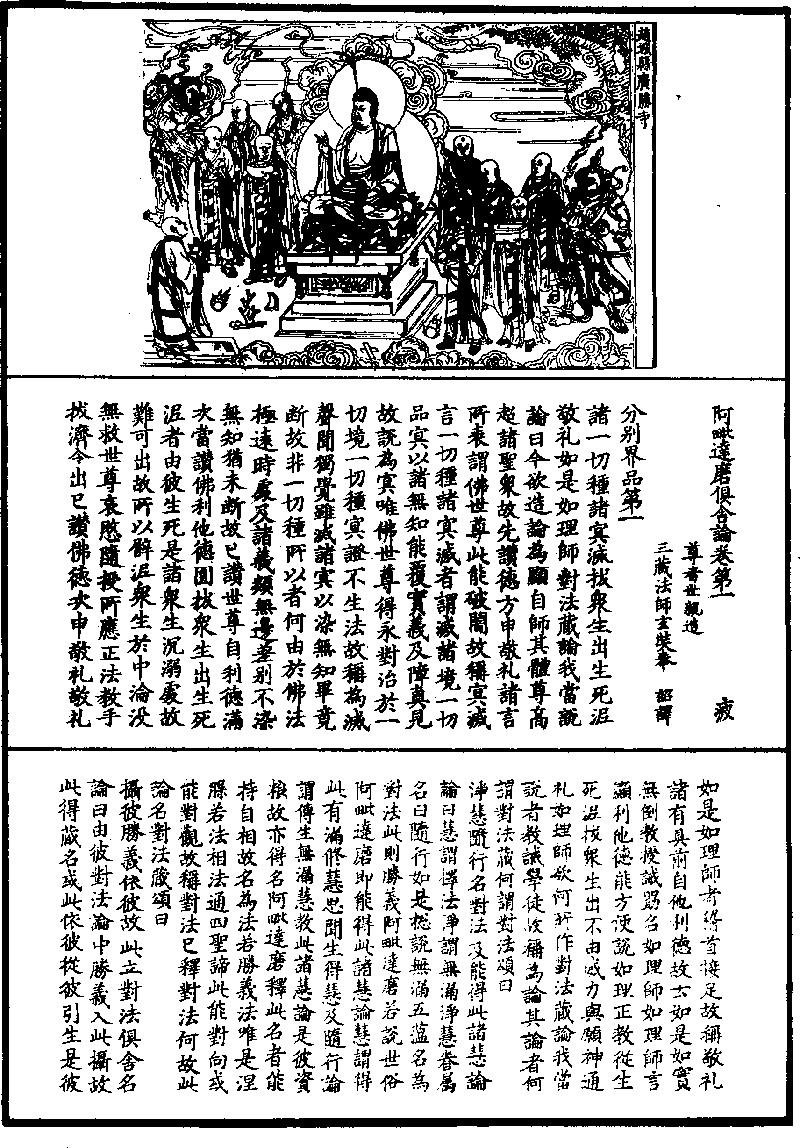 趙城縣廣勝寺
阿毗達磨俱舍論卷第一　疲
尊者世親造
三藏法師玄奘奉　詔譯
分別界品第一
諸一切種諸冥滅拔衆生出生死泥
敬礼如是如理師對法藏論我當說
論曰今欲造論為顯自師其體尊高
超諸聖衆故先讚德方申敬礼諸言
所表謂佛世尊此能破闇故稱冥滅
言一切種諸冥滅者謂滅諸境一切
品冥以諸無知能覆實義及障真見
故說為冥唯佛世尊得永對治於一
切境一切種冥證不生法故稱為滅
聲聞獨覺雖滅諸冥以染無知畢竟
斷故非一切種所以者何由於佛法
極遠時處及諸義類無邊差別不染
無知猶未斷故已讚世尊自利德滿
次當讚佛利他德圓拔衆生出生死
泥者由彼生死是諸衆生沉溺處故
難可出故所以譬泥衆生於中淪没
無救世尊哀愍隨授所應正法教手
拔濟令出已讚佛德次申敬礼敬礼
如是如理師者稽首接足故稱敬礼
諸有具前自他利德故云如是如實
無倒教授誡勗名如理師如理師言
顯利他德能方便說如理正教從生
死泥拔衆生出不由威力與願神通
礼如理師欲何所作對法藏論我當
說者教誡學徒故稱為論其論者何
謂對法藏何謂對法頌曰
淨慧隨行名對法及能得此諸慧論
論曰慧謂擇法淨謂無漏淨慧眷屬
名曰隨行如是揔說無漏五蘊名為
對法此則勝義阿毗達磨若說世俗
阿毗達磨即能得此諸慧論慧謂得
此有漏修慧思聞生得慧及隨行論
謂傳生無漏慧教此諸慧論是彼資
糧故亦得名阿毗達磨釋此名者能
持自相故名為法若勝義法唯是涅
槃若法相法通四聖諦此能對向或
能對觀故稱對法已釋對法何故此
論名對法藏頌曰
攝彼勝義依彼故此立對法俱舍名
論曰由彼對法論中勝義入此攝故
此得藏名或此依彼從彼引生是彼